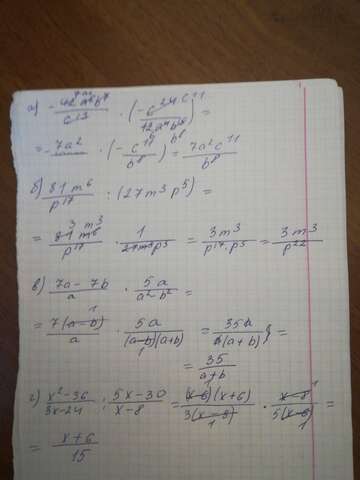 а) - 42a⁶b⁸/c¹³ · (- c²⁴·c¹¹/12a⁴b¹⁶) =
= - 7a² · (- c¹¹/b⁸) = 7a²c¹¹/b⁸
б) 81m⁶/p¹⁷ : (27m³p⁵) =
= 81m⁶/p¹⁷ · 1/27m³p⁵ = 3m³/p¹⁷·p⁵ = 3m³/p²²
в) 7a-7b/a · 5a/a²-b² =
= 7(a-b)/a · 5a/(a-b)(a+b) = 35a/a(a+b) =
= 35/a+b
г) x²-36/3x-24 : 5x-30/x-8 = (x-6)(x+6)/3(x-8) · x-8/5(x-6) =
= x+6/15